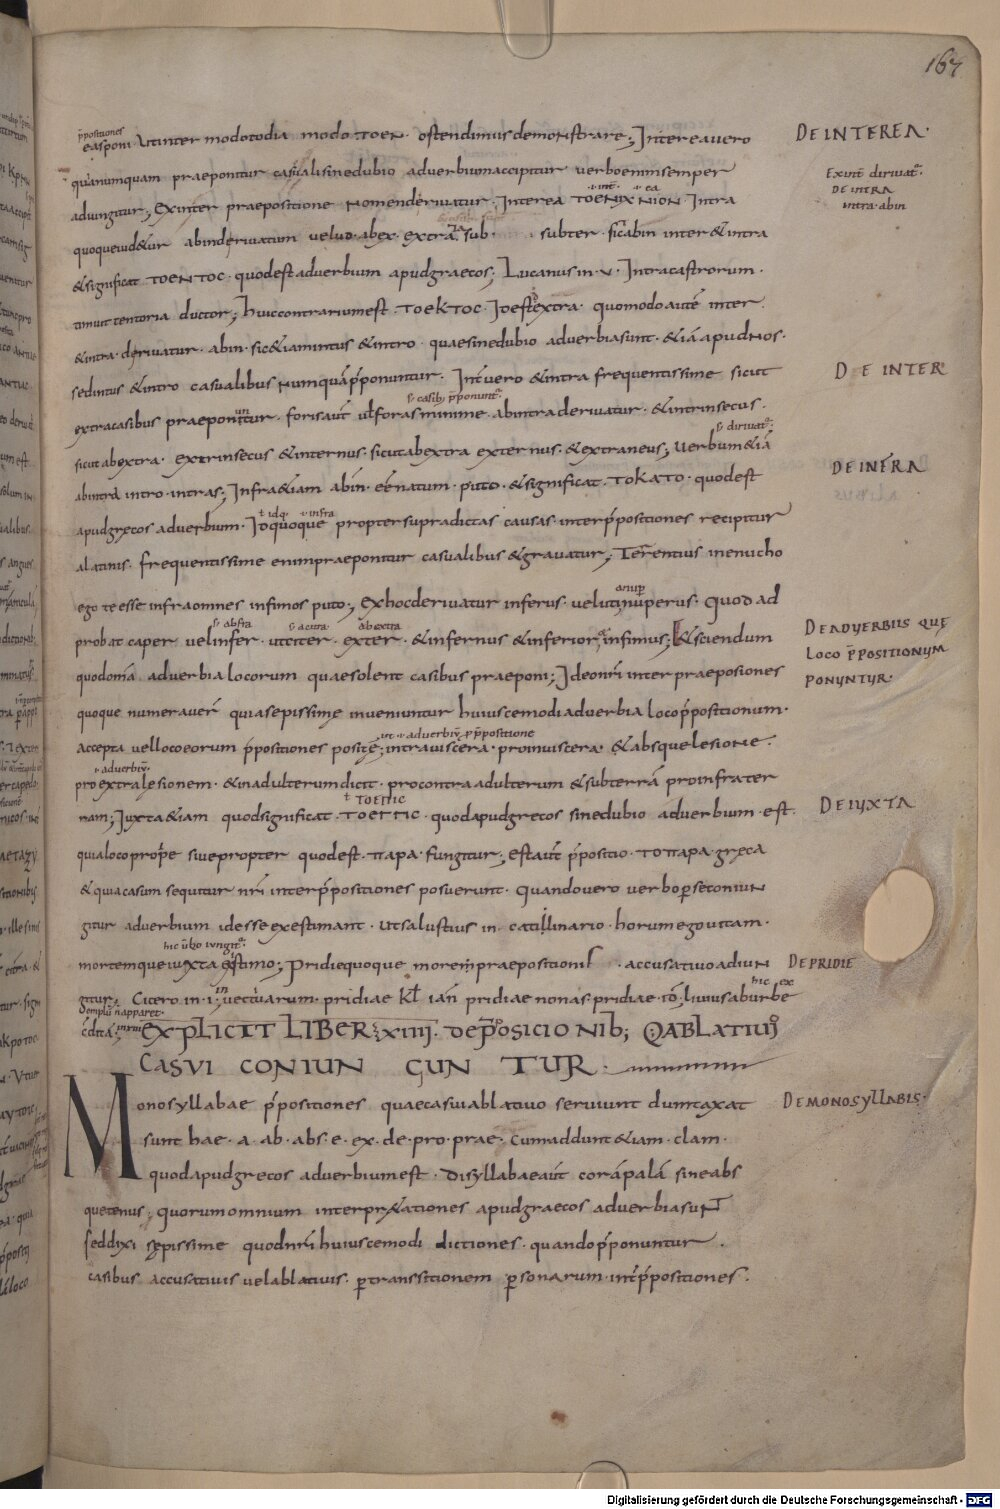 167
p̄positiones
easponi. Utinter modotodia modo TOEN. ostendimus demonstrare; Interea uero
DE INTEREA.
quanumquam praeponitur casualisinedubio aduerbium accipitur uerboenim semper
Ex int̄ diriuat̄.
DE INTRA
intra. abin
adiungitur; Exinter praepositione nomenderiuatur. Interea TOENIXNION Intra
quoqueuid&ur abinderiuatum uelud. abex. extra. sub. subter. sicabin inter & intra
&significat TOENTOC. quodest aduerbium apudgraecos; Lucanus in. v. Intracastrorum.
timuit tentoria ductor; huiccontrariumest. TOEKTOC. Idest extra. quomodo autē inter
&intra. deriuatur. abin. sic&iamintus &intro. quaesinedubio aduerbiasunt. &iā apudnos.
sedintus &intro casualibus numquāp̄ponuntur. Int̄uero &intra frequentissime sicut
DE INTER
s̄. casib; p̄ponunt̄.
extracasibus praeponuntur. forisaūt ulforasminime. abintraderiuatur. &intrinsecus.
s̄. diriuat̄:
sicut abextra. extrinsecus &internus. sicutabextra externus. &extraneus; Uerbum&iā
abintra intro. intras; Infra&iam abin. eēnatum. puto. &significat. TOKATO. quodest
DE INFRA
apudgrecos aduerbium. Idquoque propter supradictas causas. interp̄positiones recipitur
alatinis. frequentissime enimpraeponitur casualibus &grauatur; Terentius ineunucho
ego te esse infraomnes infimos puto; exhocderiuatur inferus. uelutinuperus. Quod ad
s̄. abfra s̄. acitra. abextra
probat caper uelinfer. utciter. exter. &infernus &inferior, infimus; &sciendum
DE ADUERBIIS QUE
LOCO P̄POSITIONUM
PONUNTUR.
quodomnia aduerbia locorum quaesolent casibus praeponi; Ideonr̄i inter praeposiones
quoque numerauer̄ quiasepissime inueniuntur huiuscemodi aduerbia locop̄positionum.
accepta uellocoeorum p̄positiones posite; intrauiscera. proinuiscera. &absquelesione.
aduerbiū.
proextralesionem. &inadulterumdicit. procontraadulterum &subterrā proinfrater
ram; Iuxta&iam quodsignificat. TOETTIC. quodapudgrecos sinedubio aduerbium. est.
DE IUXTA
quialocoprope siuepropter quodest. παρα. fungitur; est aūt p̄positio. τοπαρα. greca
&quiacasum sequitur nr̄i interp̄positiones posuerunt. quandouero uerboperseconiun
gitur aduerbium idesseexestimant. utsalustius in. catillinario. horumegouitam.
hic ūbo iungit̄.
mortemqueiuxta estimo; Pridiequoque morempraepositionis. accusatiuoadiun
DE PRIDIE
gitur; Cicero in. i. inuectiuarum. pridiae kl iañ pridiae nonas pridiae. id; liuius aburbe
EXPLICIT LIBER. XIIII. DE P̄POSICIONIB; Q ABLATIUO
CASUI CONIUNGUNTUR.
Monosyllabae p̄positiones quaecasuiablatiuo seruiunt dumtaxat
DE MONOSYLLABIS.
sunt hae. a. ab. abs. e. ex. de. pro. prae. cumaddunt&iam. clam.
quodapudgrecos aduerbiumest. Disyllabaeaūt corā palā sineabs
quetenus; quorumomnium interpr&ationes apudgraecos aduerbiasunt
seddixi sepissime quodnr̄i huiuscemodi dictiones. quandop̄ponuntur.
casibus accusatiuis uelablatiuis. pertranssitionem personarum. int̄p̄positiones.
Digitalisierung gefördert durch die Deutsche Forschungsgemeinschaft - DFG